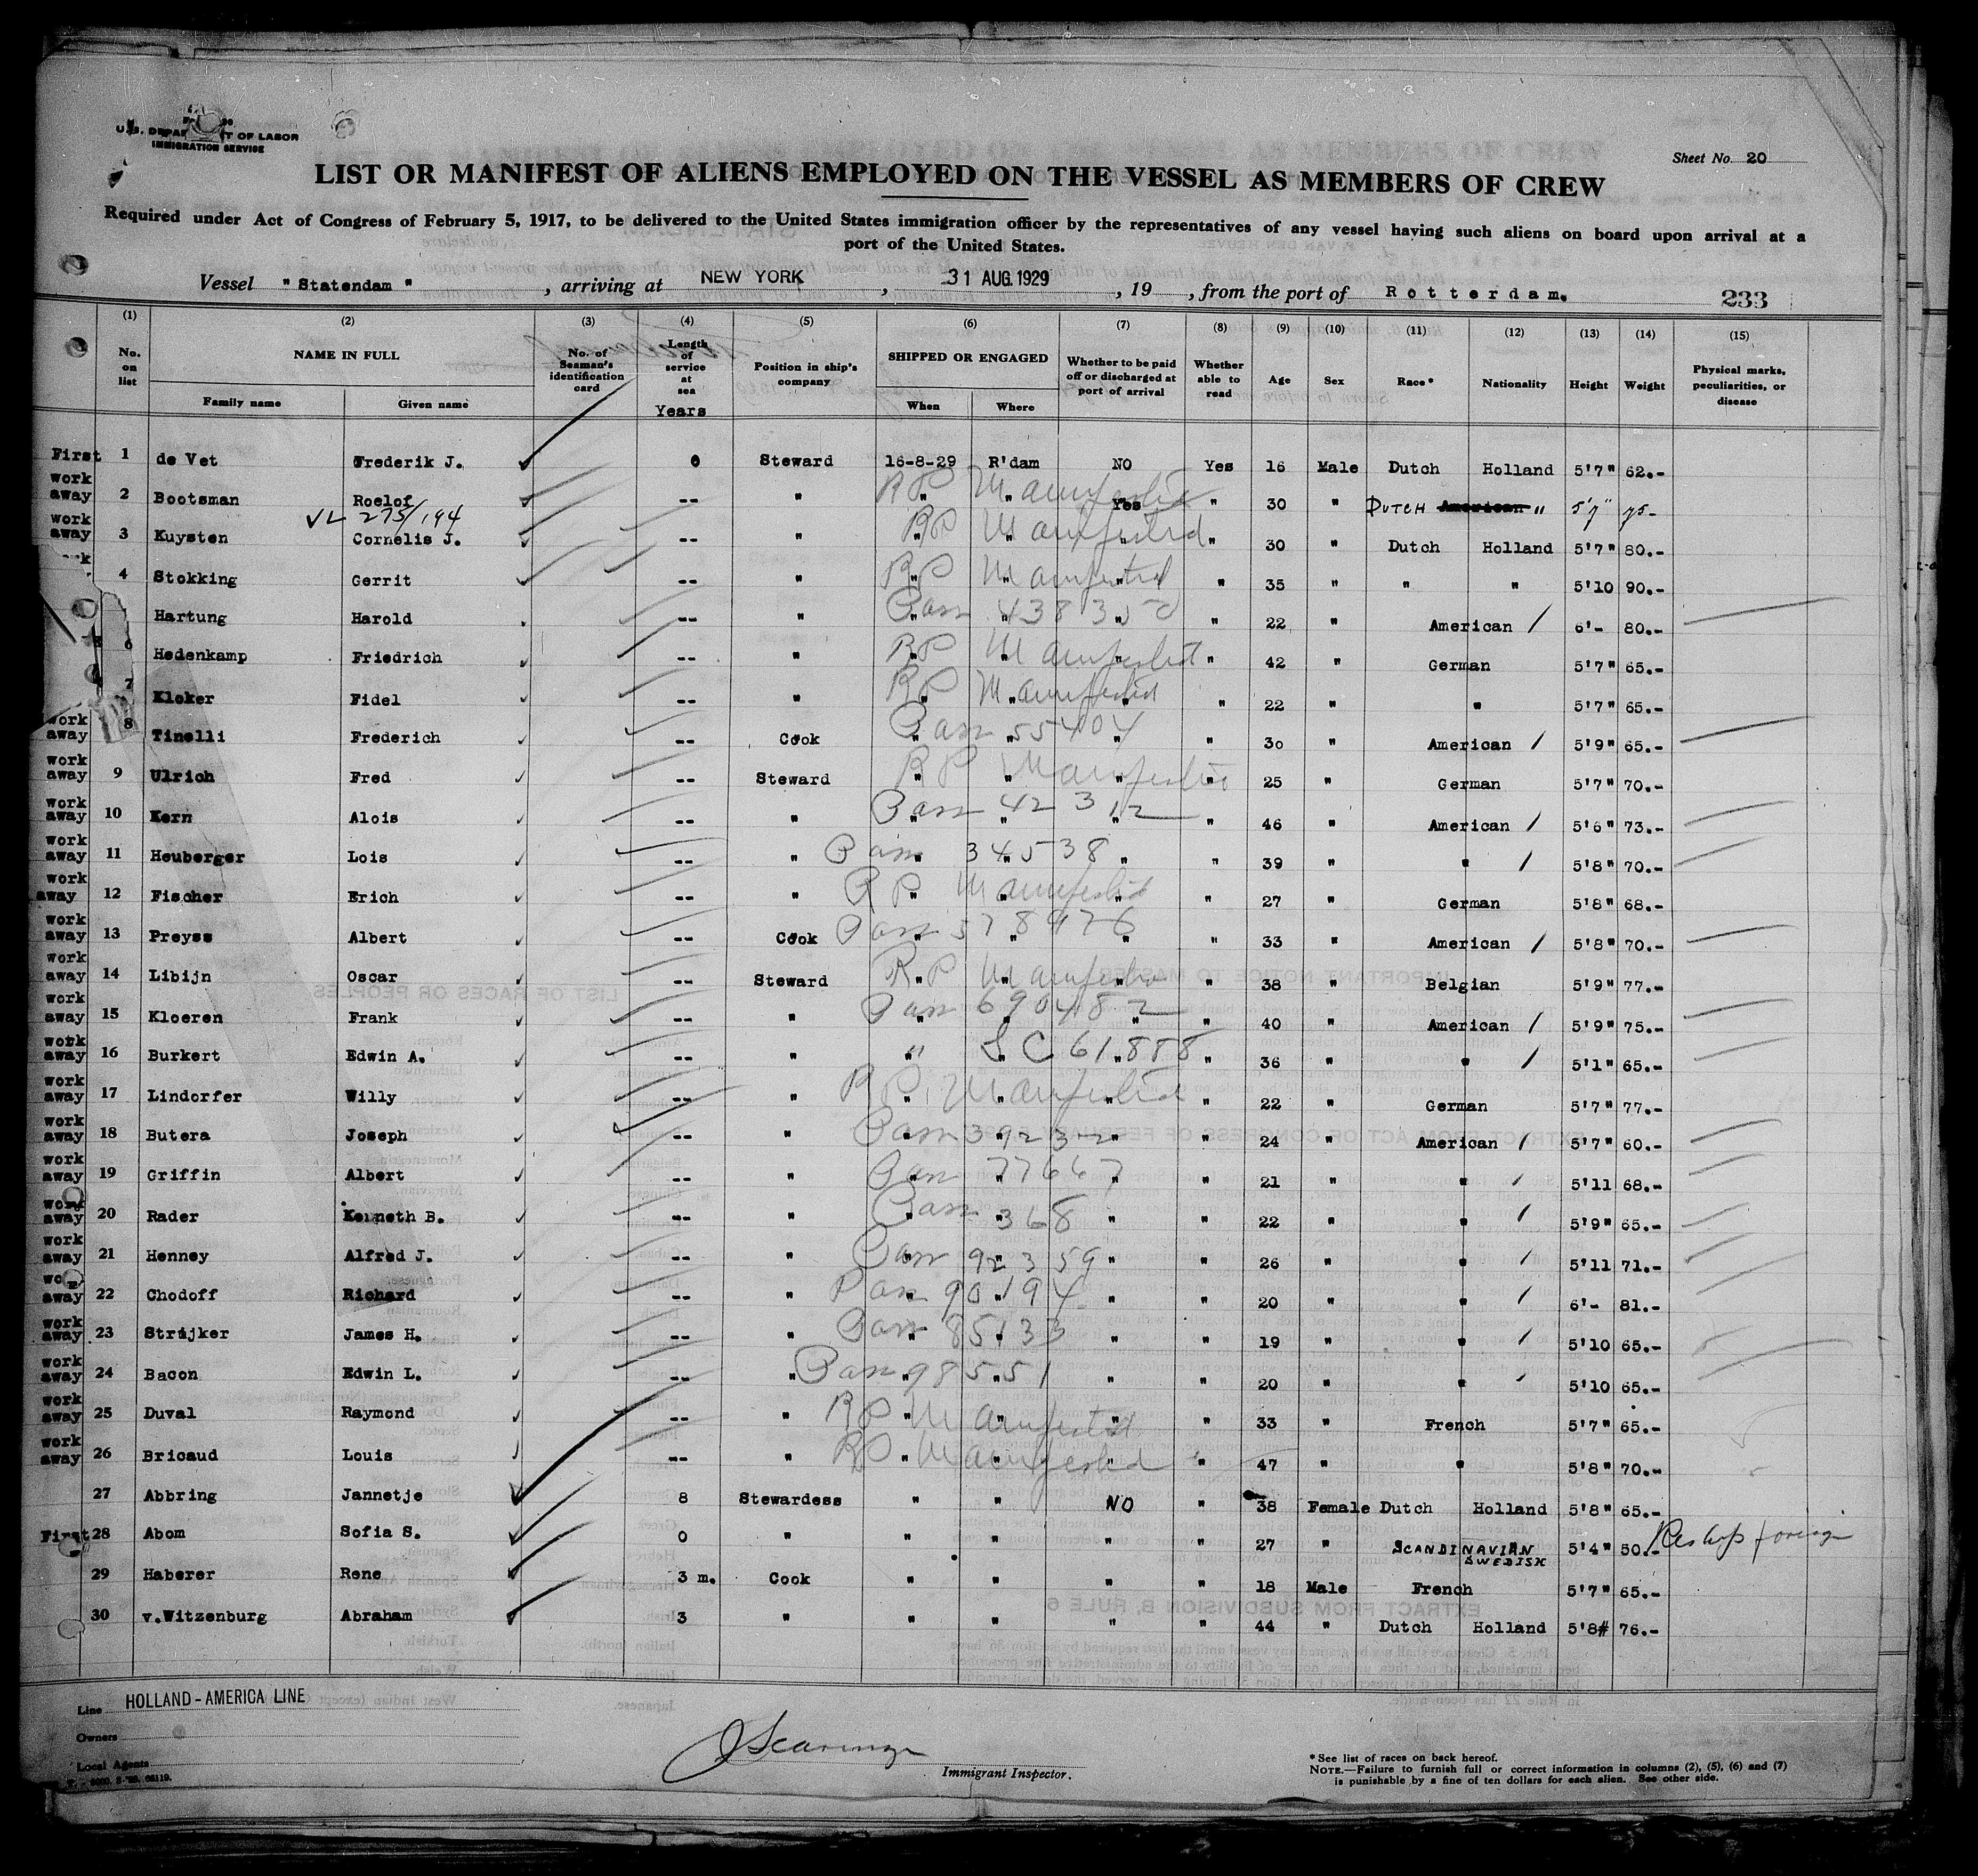 U.S. DEPARTMENT OF LABOR
IMMIGRATION SERVICE
Sheet No. 20
LIST OR MANIFEST OF ALIENS EMPLOYED ON THE VESSEL AS MEMBERS OF CREW
Required under Act of Congress of February 5, 1917, to be delivered to the United States immigration officer by the representatives of any vessel having such aliens on board upon arrival at a
port of the United States.
Vessel "Statendam", arriving at NEW YORK, 31 AUG. 1929, 19, from the port of Rotterdam. 233
(1) (2) (3) (4) (5) (6) (7) (8) (9) (10) (11) (12) (13) (14) (15)
No. on list NAME IN FULL Family name Given name No. of Seaman's identification card Length of service at sea Years Position in ship's company SHIPPED OR ENGAGED When Where Whether to be paid off or discharged at port of arrival Whether able to read Age Sex Race* Nationality Height Weight Physical marks, peculiarities, or disease
First 1 de Vet Frederik J. 0 Steward 16-8-29 R'dam NO Yes 16 Male Dutch Holland 5'7" 62.-
work away 2 Bootsman Roelof -- " " RP " Manifested Yes " 30 " DUTCH American " 5'7" 75-
VL 275/194
work away 3 Kuysten Cornelis J. -- " " RP " Manifested " " 30 " Dutch Holland 5'7" 80.-
4 Stokking Gerrit -- " " RP " Manifested " " 35 " " " 5'10 90.-
Hartung Harold -- " " Pass " " " 22 " American / 6'- 80.-
6 Hedenkamp Friedrich -- " " RP " Manifested " " 42 " German 5'7" 65.-
7 Kloker Fidel -- " " RP " Manifested " " 22 " " 5'7" 65.-
work away 8 Tinelli Frederich -- Cook " Pass " 55404 " " 30 " American / 5'9" 65.-
work away 9 Ulrich Fred -- Steward " RP " Manifested " " 25 " German 5'7" 70.-
work away 10 Kern Alois -- " " Pass " 42312 " " 46 " American / 5'6" 73.-
work away 11 Heuberger Lois -- " " Pass " 34538 " " 39 " " / 5'8" 70.-
work away 12 Fischer Erich -- " " RP " Manifested " " 27 " German 5'8" 68.-
work away 13 Preyss Albert -- Cook " Pass " 578976 " " 33 " American / 5'8" 70.-
work away 14 Libijn Oscar -- Steward " RP " Manifested " " 38 " Belgian 5'9" 77.-
work away 15 Kloeren Frank -- " " Pass " 690482 " " 40 " American / 5'9" 75.-
work away 16 Burkert Edwin A. -- " " SC 61888 " " 36 " " / 5'1" 65.-
work away 17 Lindorfer Willy -- " " RP " Manifested " " 22 " German 5'7" 77.-
work away 18 Butera Joseph -- " " Pass " 39232 " " 24 " American / 5'7" 60.-
work away 19 Griffin Albert -- " " Pass " 77667 " " 21 " " / 5'11 68.-
work away 20 Rader Kenneth B. -- " " Pass " 368 " " 22 " " / 5'9" 65.-
work away 21 Henney Alfred J. -- " " Pass " 92359 " " 26 " " / 5'11 71.-
work away 22 Chodoff Richard -- " " Pass " 90194 " " 20 " " / 6'- 81.-
work away 23 Strijker James H. -- " " Pass " 85133 " " 19 " " / 5'10 65.-
work away 24 Bacon Edwin L. -- " " Pass " 98551 " " 20 " " / 5'10 65.-
work away 25 Duval Raymond -- " " RP " Manifested " " 33 " French 5'7" 65.-
work away 26 Bricaud Louis -- " " RP " Manifested " " 47 " " 5'8" 70.-
27 Abbring Jannetje 8 Stewardess " " NO " 38 Female Dutch Holland 5'8" 65.-
First 28 Abom Sofia S. 0 " " " " " 27 " SCANDINAVIAN SWEDISH 5'4" 50.-
29 Haberer Rene 3 m. Cook " " " " 18 Male French 5'7" 65.-
30 v.Witzenburg Abraham 3 " " " " " 44 " Dutch Holland 5'8# 76.-
Line HOLLAND-AMERICA LINE
Owners
Local Agents
Immigrant Inspector.
*See list of races on back hereof.
NOTE.—Failure to furnish full or correct information in columns (2), (5), (6) and (7)
is punishable by a fine of ten dollars for each alien. See other side.